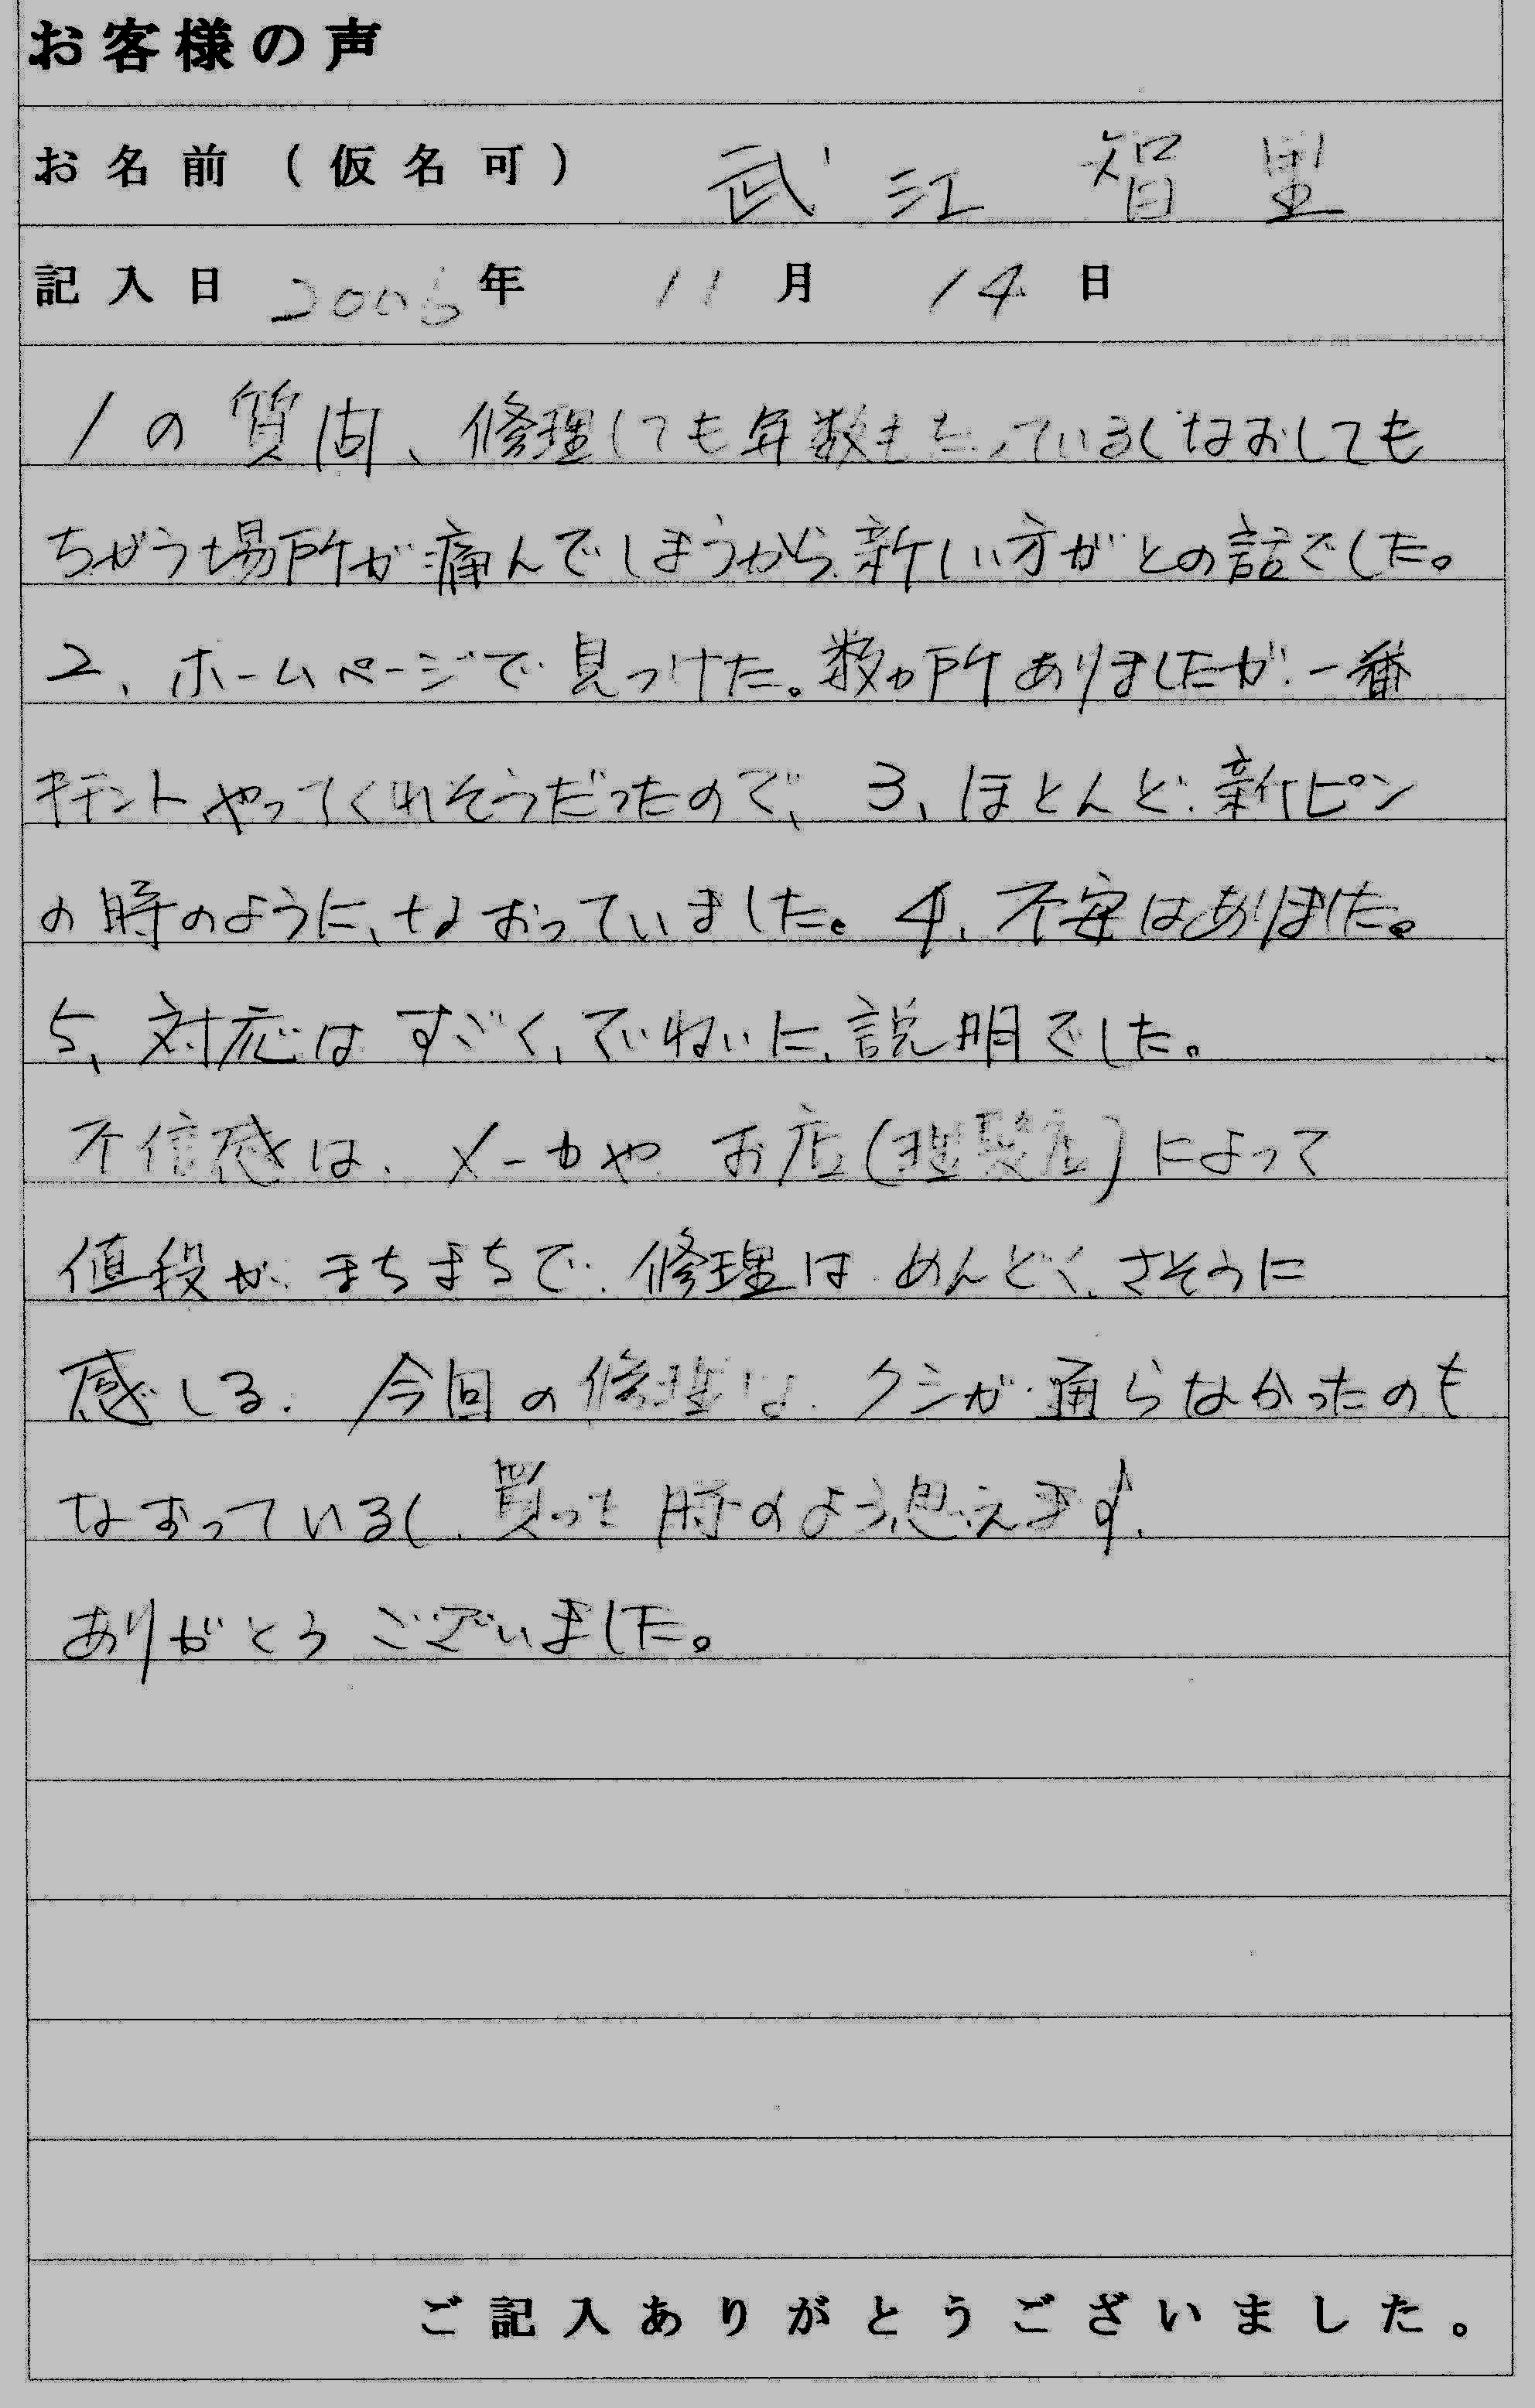 お客様の声
お名前(仮名可) 武江 智里
記入日 2006年 11月 14日
1の質問、修理しても年数もたっているしなおしても
ちがう場所が痛んでしまうから新しい方がとの話でした。
2、ホームページで見つけた。数ヵ所ありましたが、一番
キチントやってくれそうだったので、3、ほとんど、新ピン
の時のように、なおっていました。4、不安はありました。
5、対応はすごく、ていねいに、説明でした。
不信感は、メーカやお店(理髪店)によって
値段が、まちまちで、修理は、めんどく、さそうに
感じる。今回の修理は、クシが通らなかったのも
なおっているし、買って時のよう思えます。
ありがとうございました。
ご記入ありがとうございました。